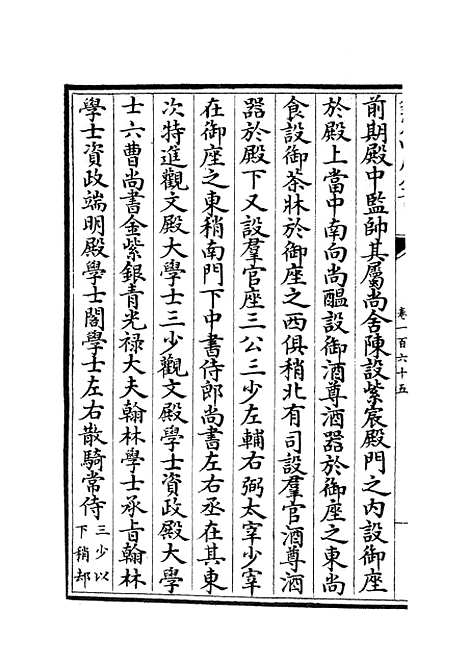 卷一百六十五
前期殿中監帥其屬尚舍陳設紫宸殿門之內設御座
於殿上當中南向尚醞設御酒尊酒器於御座之東尚
食設御茶牀於御座之西俱稍北有司設羣官酒尊酒
器於殿下又設羣官座三公三少左輔右弼太宰少宰
在御座之東稍南門下中書侍郎尚書左右丞在其東
次特進觀文殿大學士三少觀文殿學士資政殿大學
士六曹尚書金紫銀青光禄大夫翰林學士承旨翰林
學士資政端明殿學士閣學士左右散騎常侍三少以
下稍却